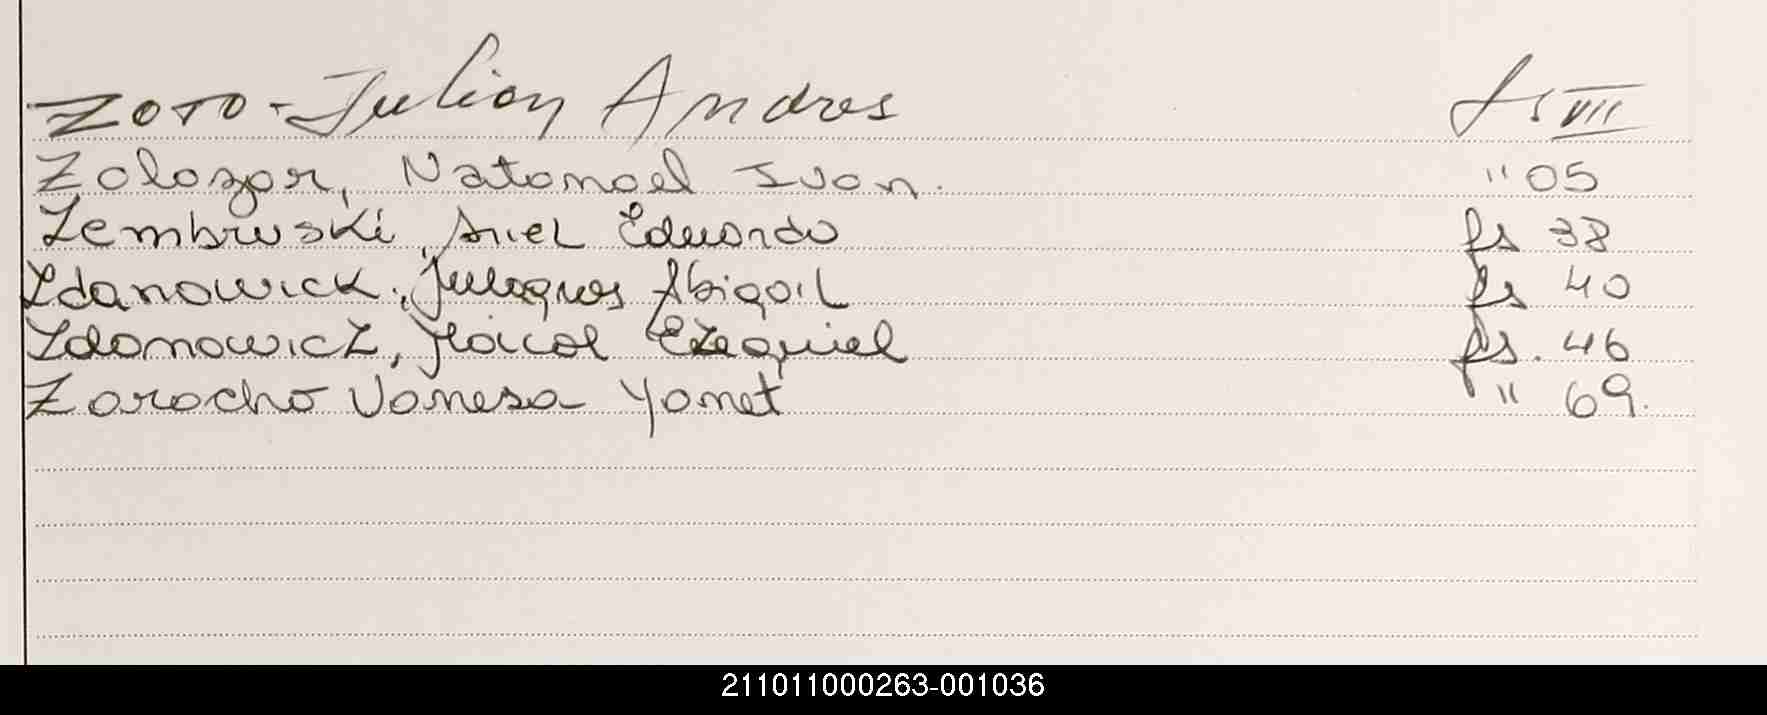 Zoto - Julian Andres fs VII
Zalazar, Natanael Ivan. " 05
Zembruski, Ariel Eduardo fs 38
Zdanowick, Abigail fs 40
Zdanowicz, Ezequiel fs. 46
Zaracho Vanesa Yanet " 69.
211011000263-001036